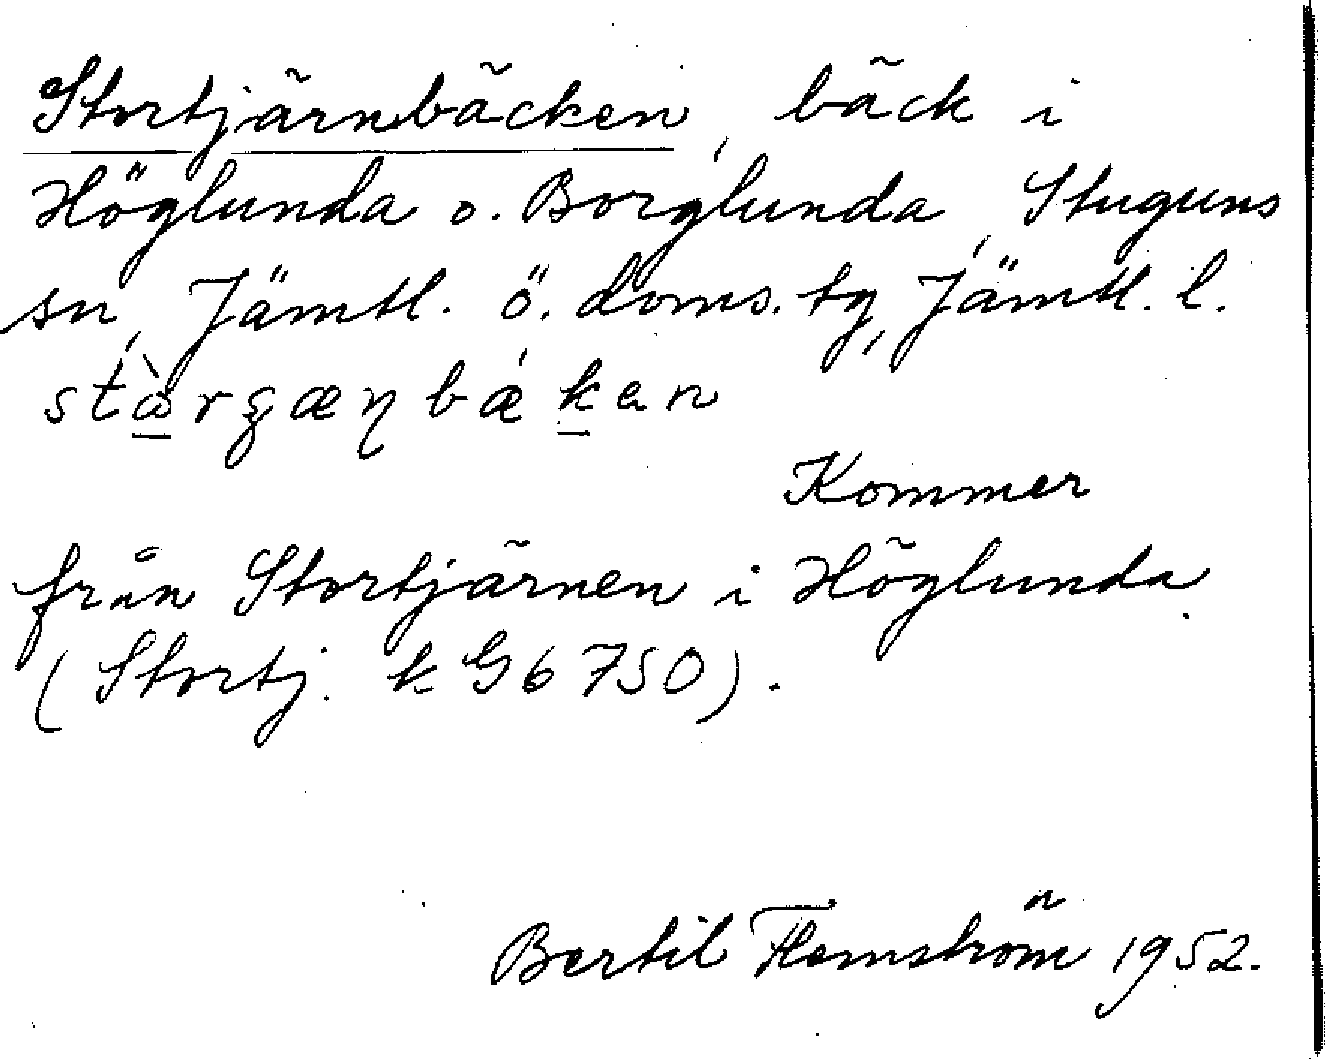 Stortjärnbäcken, bäck i
Höglunda o. Borglunda, Stuguns
sn, Jämtl. ö. doms. tg, Jämtl. l.
stàrʒæɳbǽken
Kommer
från Stortjärnen i Höglunda.
(Stortj. k G6 750).
Bertil Flemström 1952.